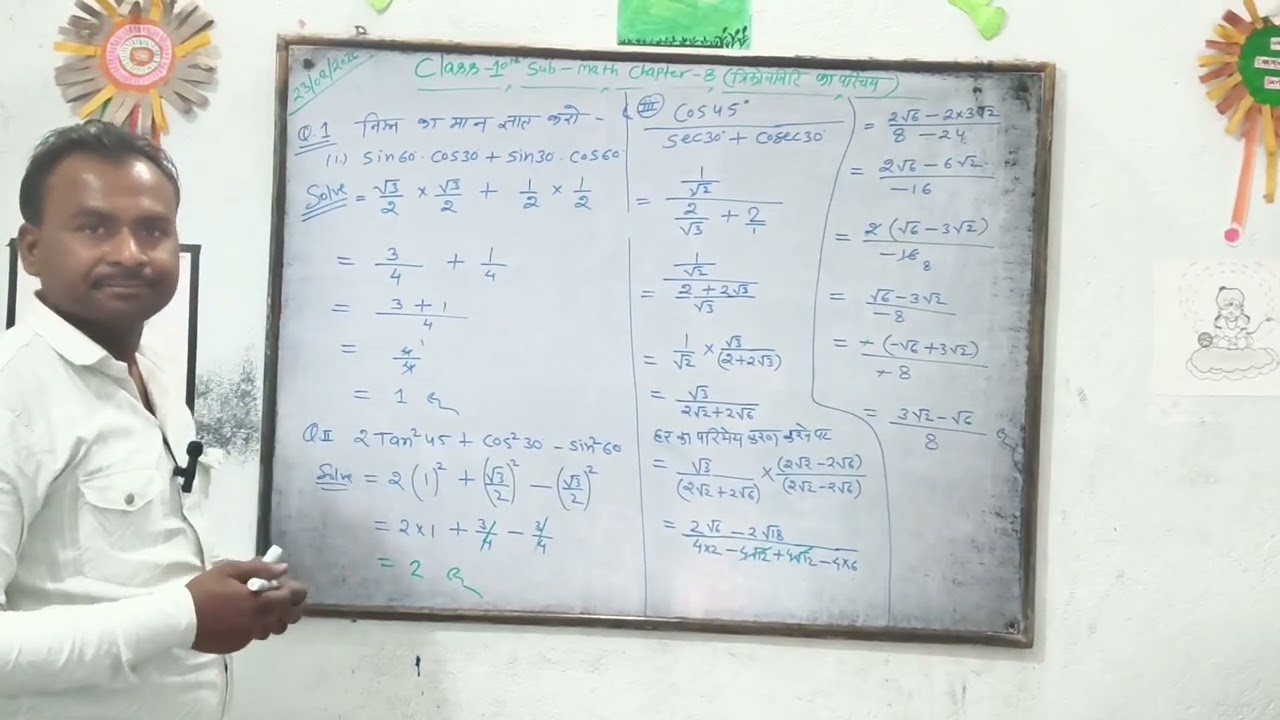 23/02/2026
Class-10th Sub-math Chapter-8 (त्रिकोणमिति का परिचय)
Q.1 निम्न का मान ज्ञात करो -
(i.) sin60. cos30 + sin30. cos60
Solve = √3/2 × √3/2 + 1/2 × 1/2
= 3/4 + 1/4
= 3+1/4
= 4/4 1
= 1
Q II 2Tan²45 + cos²30 - sin²60
Solve = 2(1)² + (√3/2)² - (√3/2)²
= 2×1 + 3/4 - 3/4
= 2
III cos45°/sec30° + cosec30°
= 1/√2 / 2/√3 + 2/1
= 1/√2 / 2+2√3/√3
= 1/√2 × √3/(2+2√3)
= √3/2√2+2√6
हर का परिमेय करण करने पर
= √3/(2√2+2√6) × (2√2-2√6)/(2√2-2√6)
= 2√6-2√18/4×2-4√12+4√12-4×6
= 2√6-2×3√2/8-24
= 2√6-6√2/-16
= 2(√6-3√2)/-16 8
= √6-3√2/-8
= -(-√6+3√2)/-8
= 3√2-√6/8